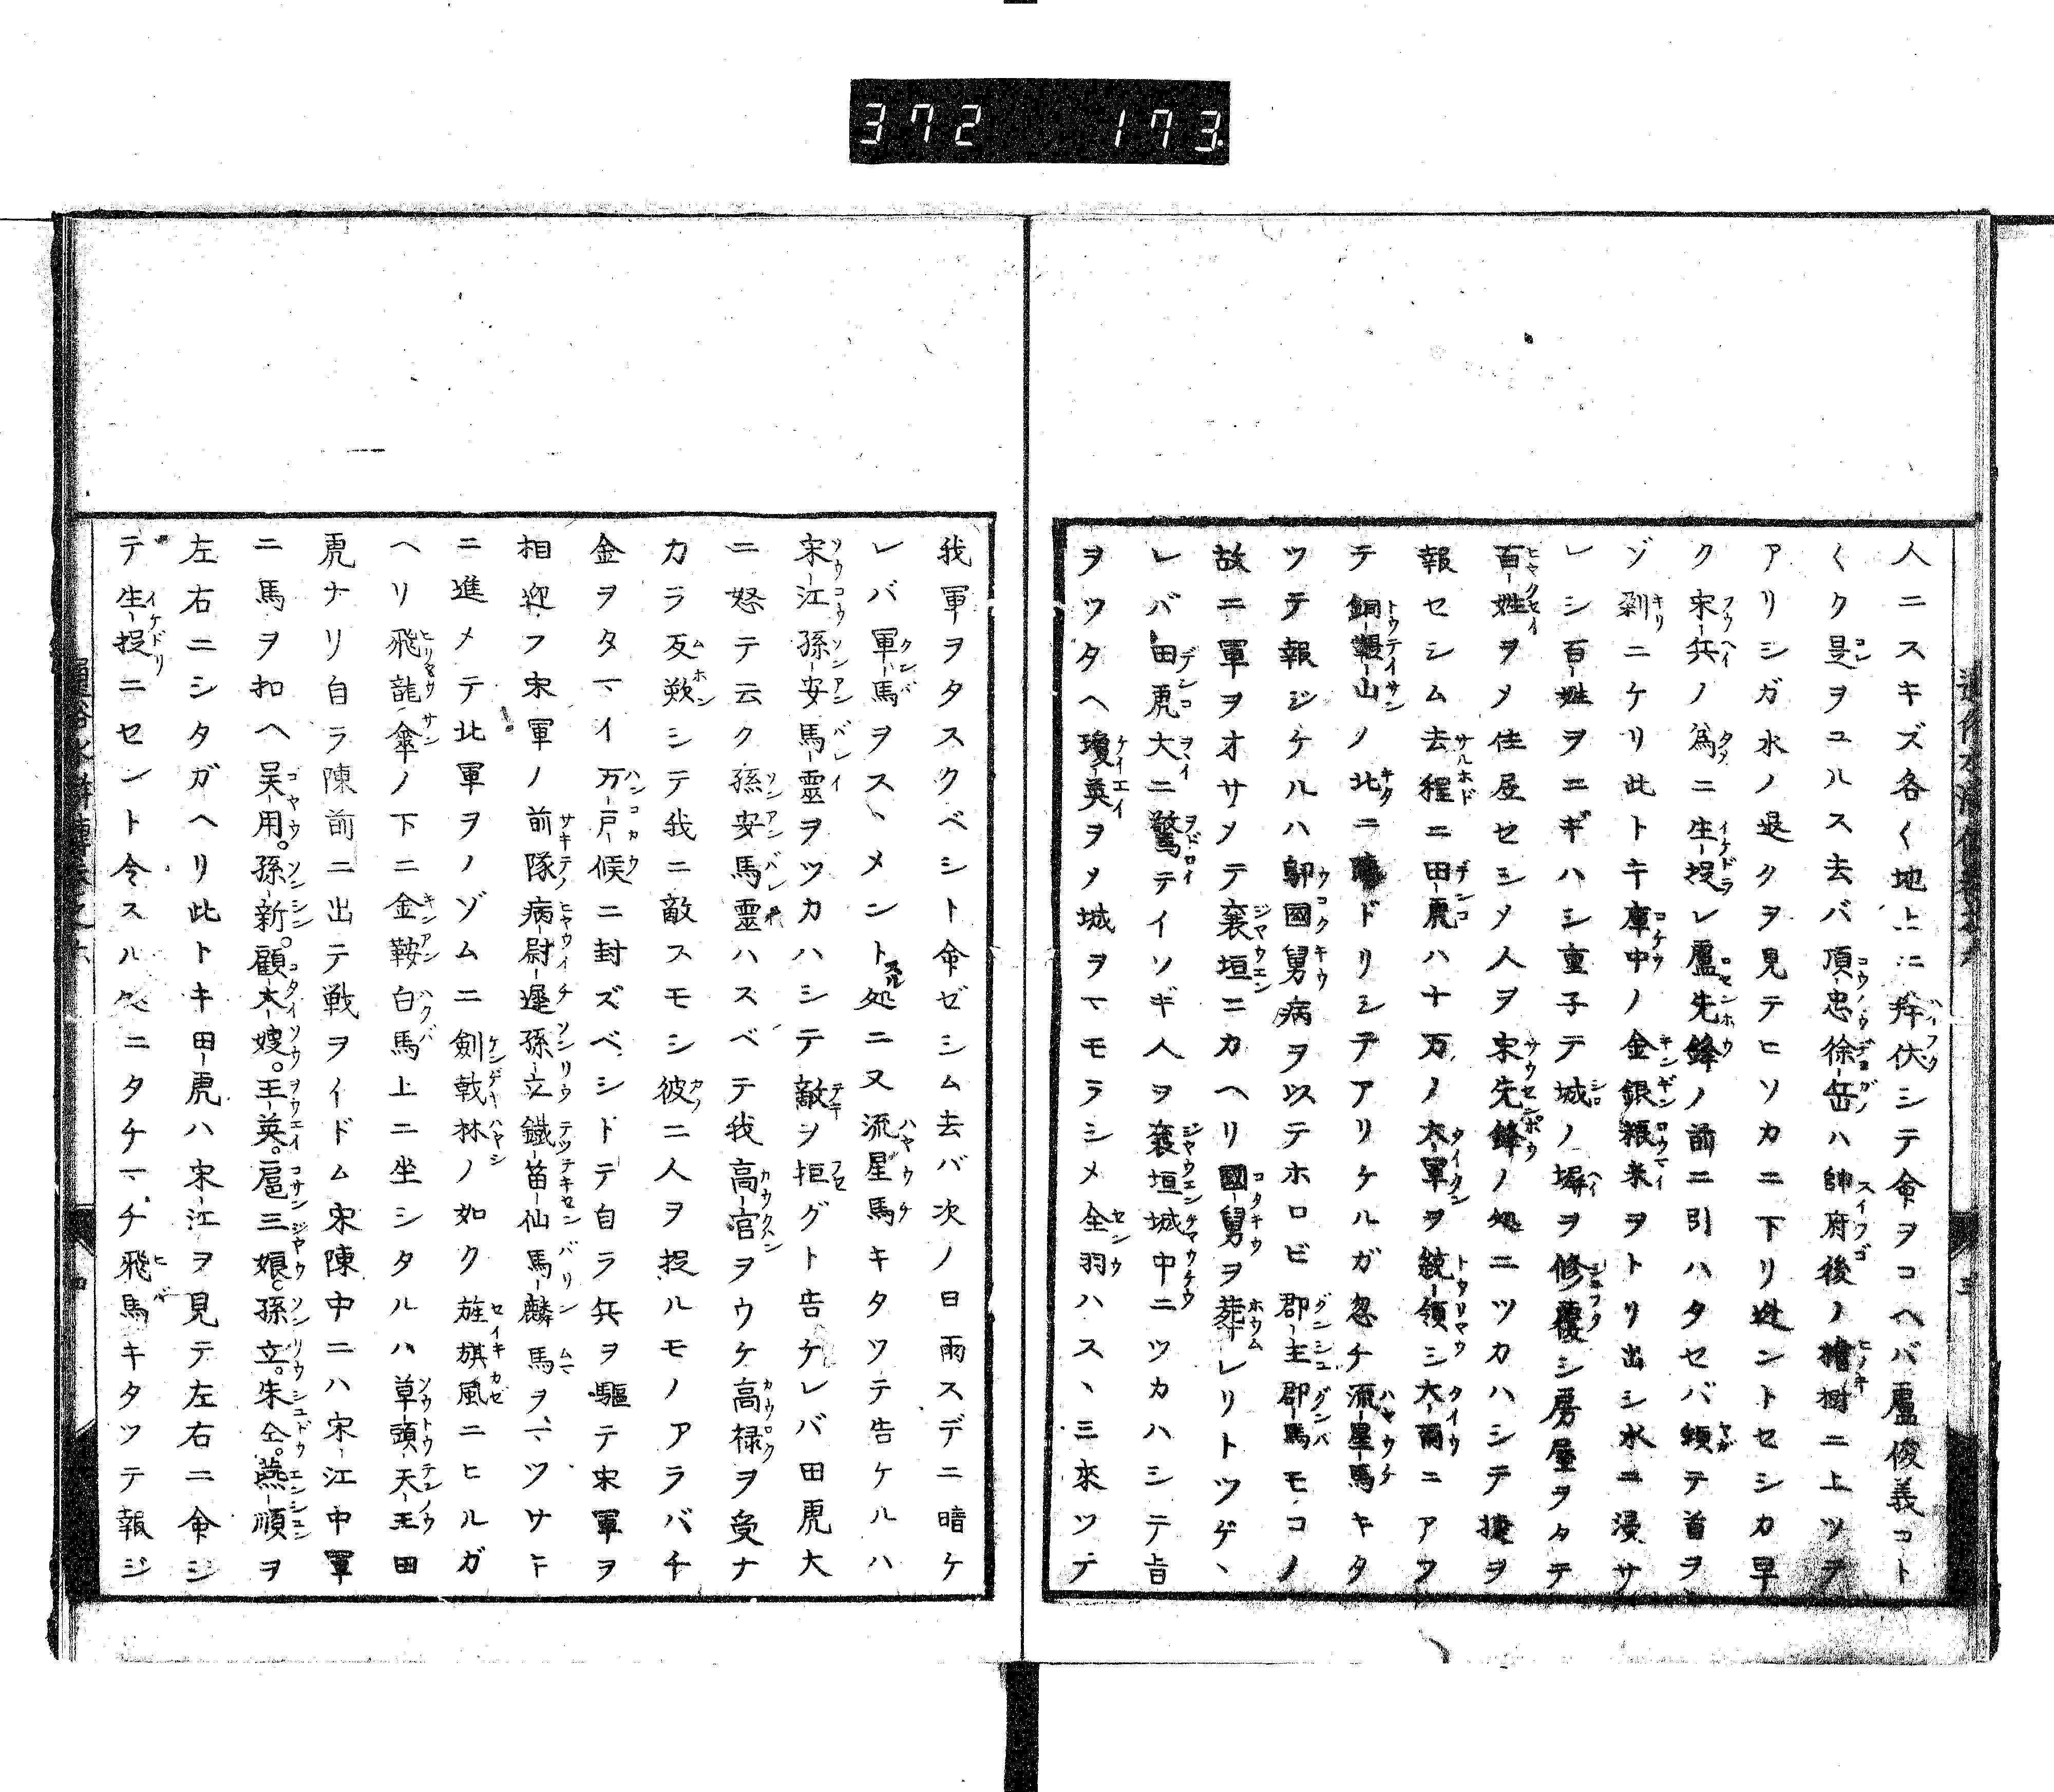 372 173
人ニスキズ各〱地上ニ拜伏シテ命ヲコヘバ盧俊義コト
〱ク是ヲユルス去バ項忠徐岳ハ帥府後ノ檜樹ニ上ツテ
アリシガ水ノ退クヲ見テヒソカニ下リ逃ントセシカ早
ク宋兵ノ為ニ生投レ盧先鋒ノ前ニ引ハタセバ頓テ首ヲ
ゾ剝ニケリ此トキ庫中ノ金銀粮米ヲトリ出シ水ニ浸サ
レシ百姓ヲニギハシ重子テ城ノ塀ヲ修覆シ房屋ヲタテ
百姓ヲメ住居セシメ人ヲ宋先鋒ノ処ニツカハシテ捷ヲ
報セシム去程ニ田虎ハ十万ノ大軍ヲ統領シ大雨ニアフ
テ銅鞮山ノ北ニ陣ドリシテアリケルガ忽チ流星馬キタ
ツテ報ジケルハ鄔國舅病ヲ以テホロビ郡主郡馬モコノ
故ニ軍ヲオサメテ襄垣ニカヘリ國舅ヲ葬レリトツゲヽ
レバ田虎大ニ驚テイソギ人ヲ襄垣城中ニツカハシテ旨
ヲツタヘ瓊英ヲメ城ヲマモラシメ全羽ハスヽ三來ツテ
我軍ヲタスクベシト命ゼシム去バ次ノ日雨スデニ暗ケ
レバ軍馬ヲスヽメントスル処ニ又流星馬キタツテ告ケルハ
宋江孫安馬靈ヲツカハシテ敵ヲ拒グト告ケレバ田虎大
ニ怒テ云ク孫安馬靈ハスベテ我高官ヲウケ高禄ヲ受ナ
カラ反欵シテ我ニ敵スモシ彼ニ人ヲ投ルモノアラバ千
金ヲタマイ万戸候ニ封ズベシドテ自ラ兵ヲ驅テ宋軍ヲ
相迎フ宋軍ノ前隊病尉遲孫立鐵笛仙馬麟馬ヲマツサキ
ニ進メテ北軍ヲノゾムニ劍戟林ノ如ク旌旗風ニヒルガ
ヘリ飛龍傘ノ下ニ金鞍白馬上ニ坐シタルハ草頭天王田
虎ナリ自ラ陳前ニ出テ戦ヲイドム宋陳中ニハ宋江中軍
ニ馬ヲ扣ヘ吴用。孫新。顧大嫂。王英。扈三娘。孫立。朱仝。燕順ヲ
左右ニシタガヘリ此トキ田虎ハ宋江ヲ見テ左右ニ命ジ
テ生投ニセント令スル処ニタチマチ飛馬キタツテ報ジ